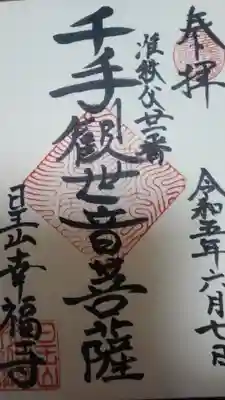 奉拝
准秩父廿一番
千手観世音菩薩
令和五年六月七日
日王山幸福寺